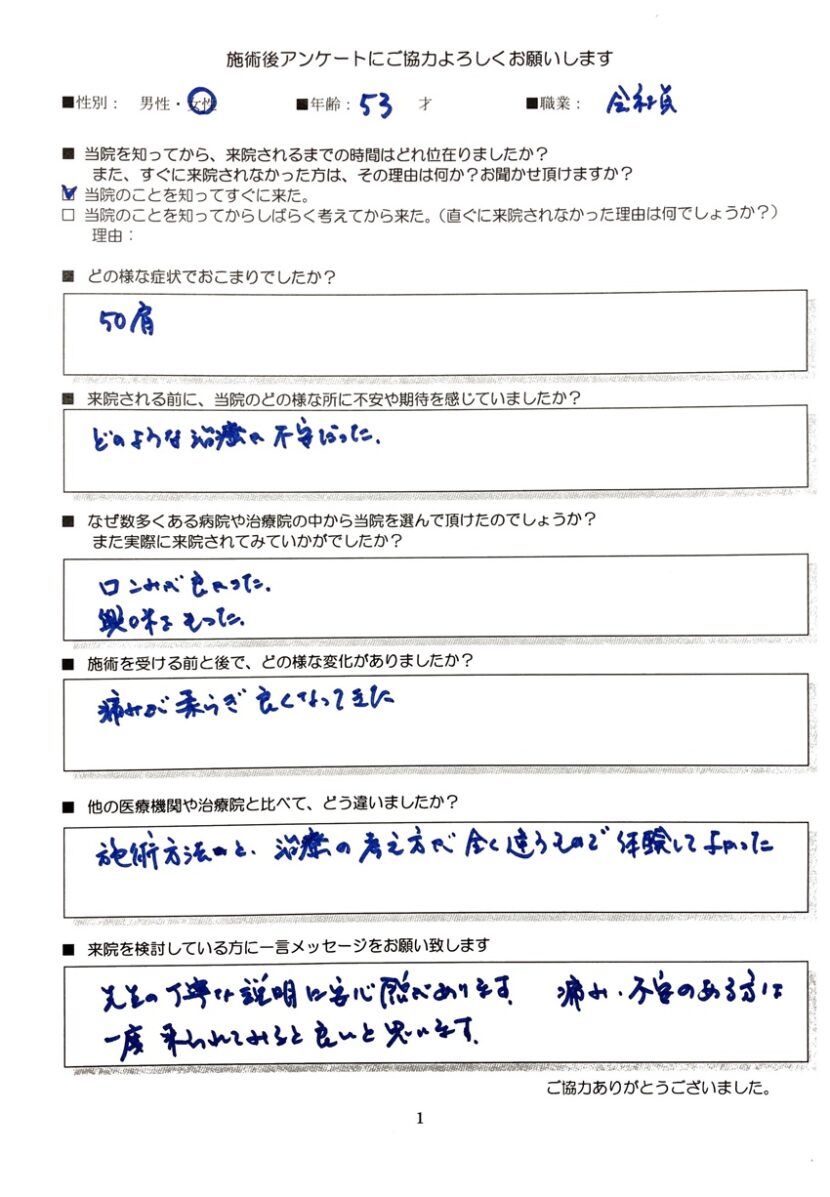 施術後アンケートにご協力よろしくお願いします
■性別: 男性・女性 ■年齢:53 才 ■職業: 会社員
■ 当院を知ってから、来院されるまでの時間はどれ位在りましたか?
また、すぐに来院されなかった方は、その理由は何か?お聞かせ頂けますか?
☑ 当院のことを知ってすぐに来た。
□ 当院のことを知ってからしばらく考えてから来た。(直ぐに来院されなかった理由は何でしょうか?)
理由:
■ どの様な症状でおこまりでしたか?
50肩
■ 来院される前に、当院のどの様な所に不安や期待を感じていましたか?
どのような治療か不安だった.
■ なぜ数多くある病院や治療院の中から当院を選んで頂けたのでしょうか?
また実際に来院されてみていかがでしたか?
口コミが良かった.
興味をもった.
■ 施術を受ける前と後で、どの様な変化がありましたか?
痛みが柔らぎ良くなってきた
■ 他の医療機関や治療院と比べて、どう違いましたか?
施術方法と、治療の考え方が全く違うもので体験してよかった
■ 来院を検討している方に一言メッセージをお願い致します
先生の丁寧な説明に安心感があります. 痛み・不安のある方は
一度来られてみると良いと思います.
ご協力ありがとうございました。
1